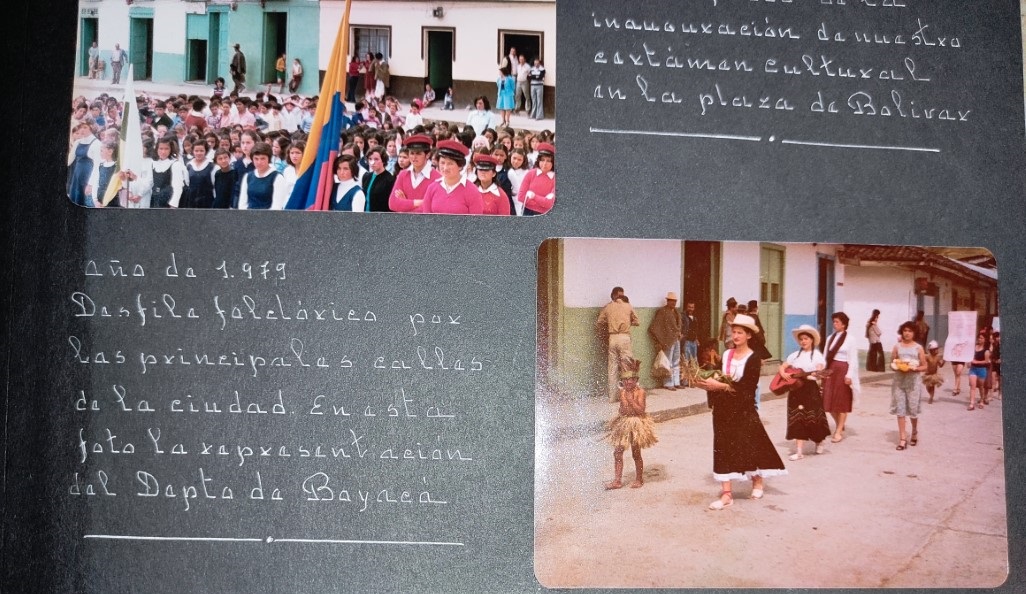 inauguración de nuestro
certámen cultural
en la plaza de Bolivar
año de 1.979
Desfile folclórico por
las principales calles
de la ciudad. En esta
foto la representación
del Depto de Boyacá